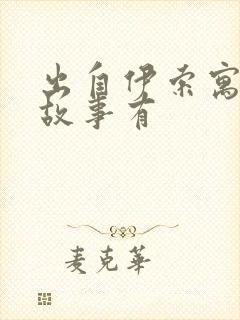 出自伊索寓
故事有
麦克华